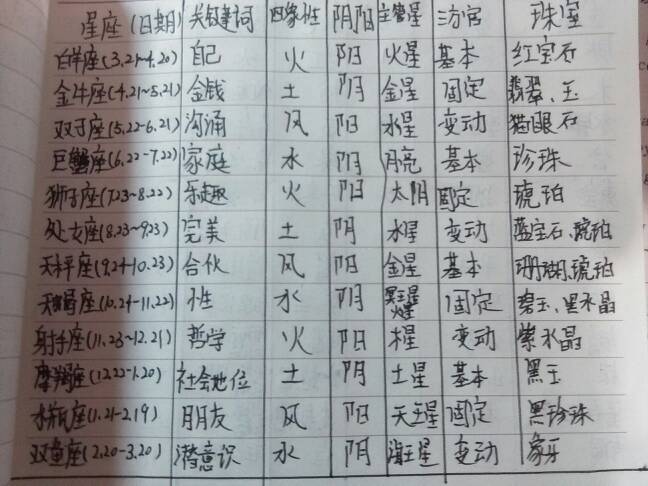 星座(日期) 关键词 四象性 阴阳 主管星 三方宫 珠宝
白羊座(3.21~4.20) 自己 火 阳 火星 基本 红宝石
金牛座(4.21~5.21) 金钱 土 阴 金星 固定 翡翠、玉
双子座(5.22-6.21) 沟通 风 阳 水星 变动 猫眼石
巨蟹座(6.22-7.22) 家庭 水 阴 月亮 基本 珍珠
狮子座(7.23~8.22) 乐趣 火 阳 太阳 固定 琥珀
处女座(8.23~9.23) 完美 土 阴 水星 变动 蓝宝石、琥珀
天秤座(9.24-10.23) 合伙 风 阳 金星 基本 珊瑚、琥珀
天蝎座(10.24-11.22) 性 水 阴 冥王星 火星 固定 碧玉、黑水晶
射手座(11.23~12.21) 哲学 火 阳 木星 变动 紫水晶
摩羯座(12.22-1.20) 社会地位 土 阴 土星 基本 黑玉
水瓶座(1.21-2.19) 朋友 风 阳 天王星 固定 黑珍珠
双鱼座(2.20-3.20) 潜意识 水 阴 海王星 变动 象牙